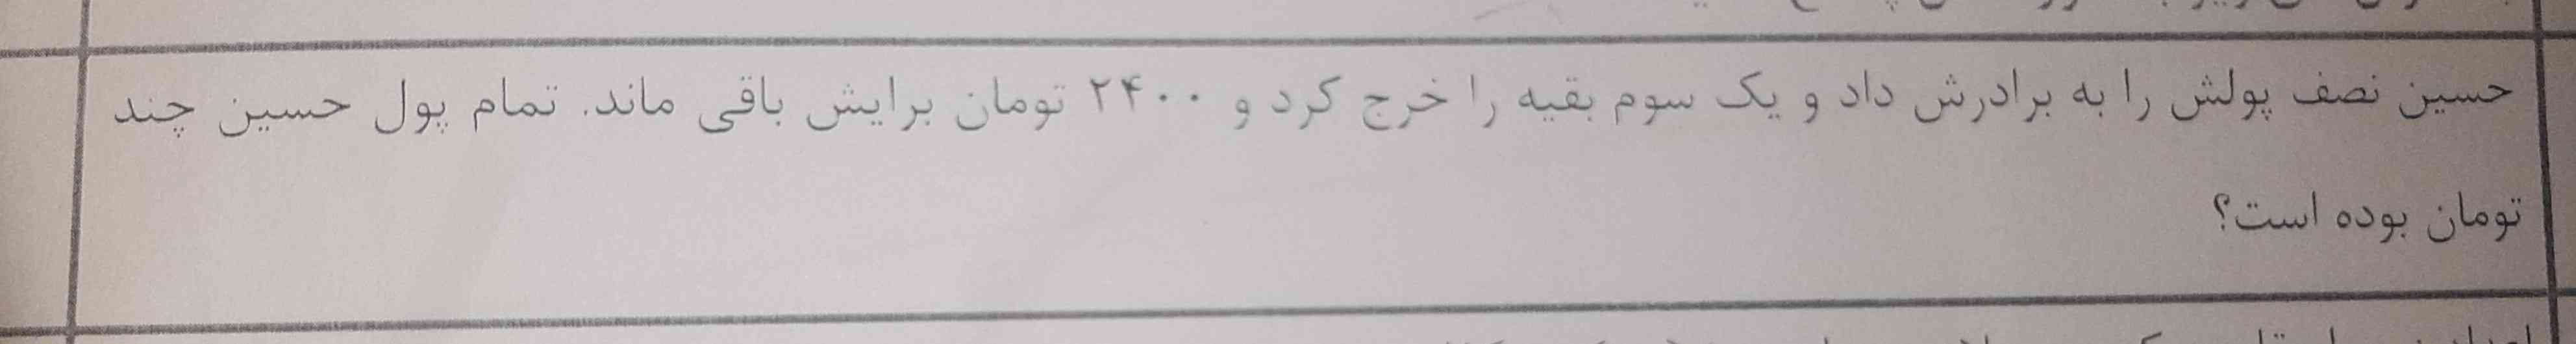 حسین نصف پولش را به برادرش داد و یک سوم بقیه را خرج کرد و ۲۴۰۰ تومان برایش باقی ماند. تمام پول حسین چند
تومان بوده است؟